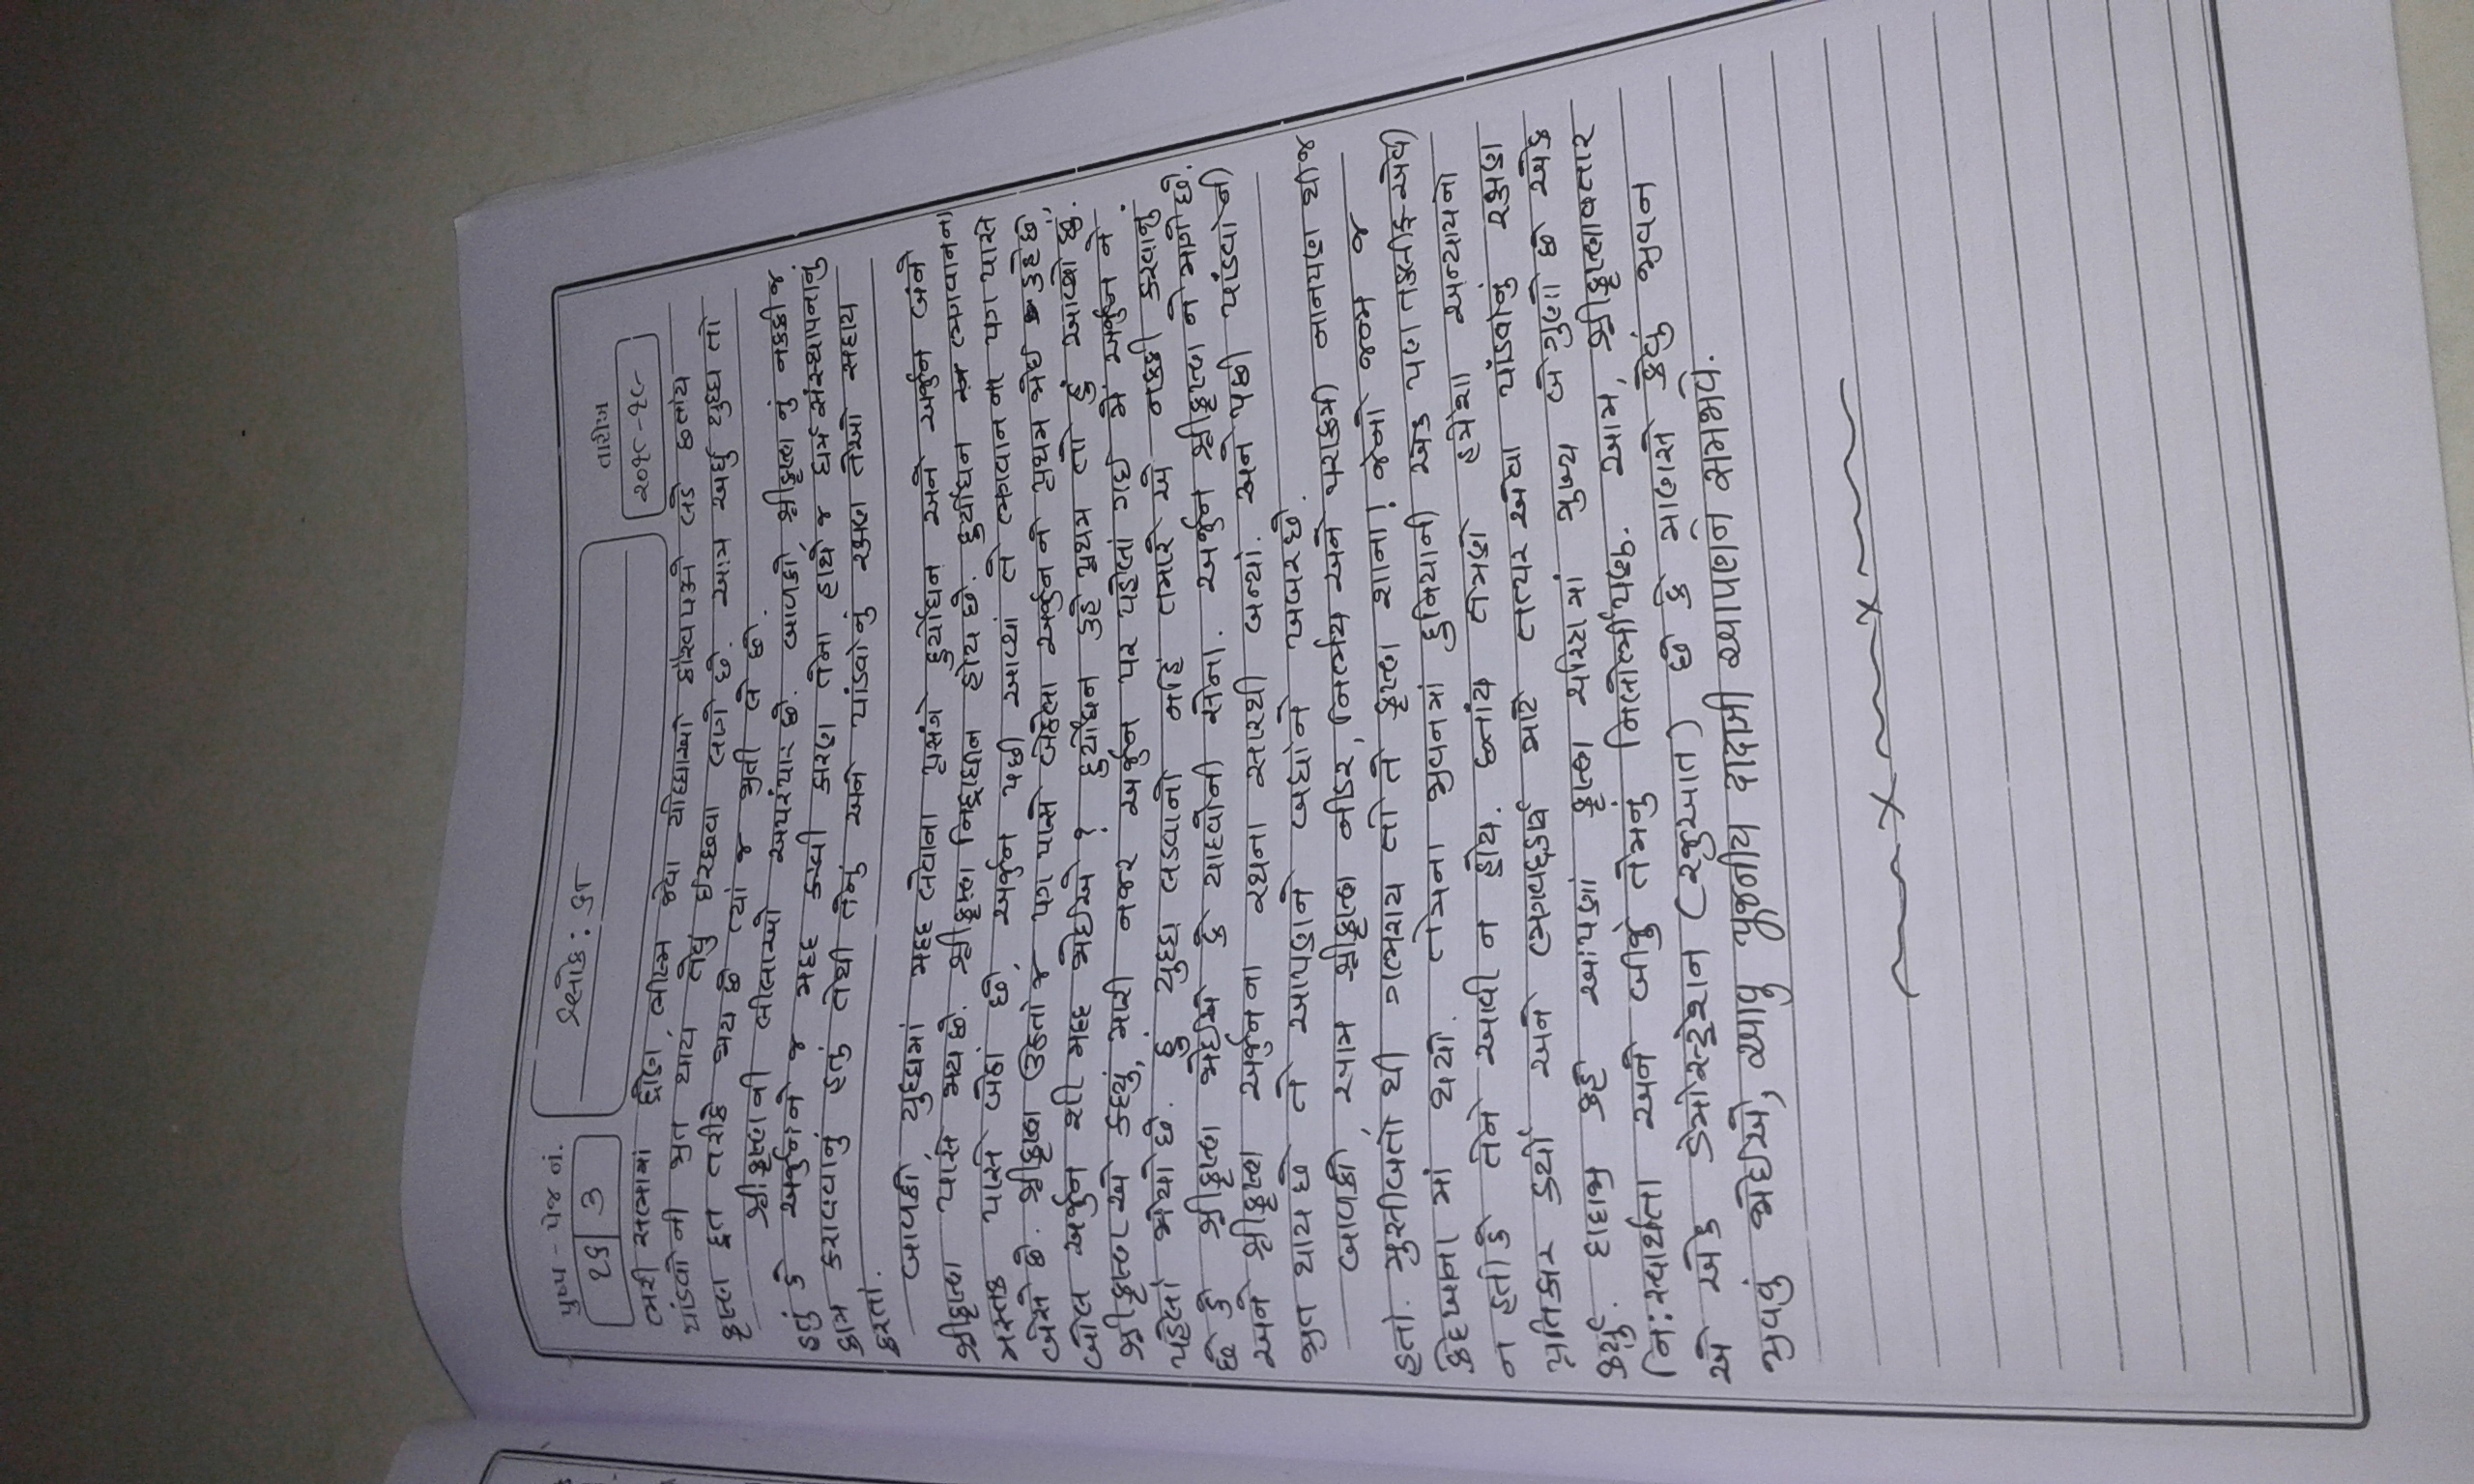 પુષ્પ - પેજ નં.
૧૬ ૩
શ્લોક: ૬૧
તારીખ
૨૦૧૮-૧૯
ભરી સભામાં દ્રોણ, ભીષ્મ જેવા યોધ્ધાઓ કૌરવપક્ષે લડે છતાંય
પાંડવોની જીત થાય તેવું ઈચ્છવા લાગે છે. આમ અર્ધુ યુધ્ધ તો
કૃષ્ણ દૂત તરીકે જાય છે ત્યાં જ જીતી લે છે.
શ્રીકૃષ્ણની લીલાઓ અપરંપાર છે. બાળકો, શ્રીકૃષ્ણ નું નક્કી જ
હતું કે અર્જુનને જ મદદ કરવી કારણ તેના હાથે જ ધર્મસંસ્થાપનાનું
કામ કરાવવાનું હતું તેથી તેનું અને પાંડવોનું રક્ષણ તેઓ સહાય
કરતાં.
બાળકો, યુધ્ધમાં મદદ લેવાના પ્રસંગે દુર્યોધન અને અર્જુન બંને
શ્રીકૃષ્ણ પાસે જાય છે. શ્રીકૃષ્ણ નિદ્રાધીન હોય છે. દુર્યોધન ભગવાનના
મસ્તક પાસે બેઠાં છે, અર્જુન પછી આવ્યાં તે ભગવાનના પગ પાસે
બેસે છે. શ્રીકૃષ્ણ ઉઠતાં જ પગ પાસે બેઠેલા અર્જુન ને પ્રથમ જોઈ કહે છે,
બોલ અર્જુન શી મદદ જોઈએ? દુર્યોધન કહે પ્રથમ તો હું આવ્યો છું.
શ્રીકૃષ્ણએ કહ્યું, મારી નજર અર્જુન પર પહેલાં ગઈ મેં અર્જુન ને
પહેલાં જોયો છે. હું યુધ્ધ લડવાનો નહિં તમારે એ નક્કી કરવાનું
છે કે શ્રીકૃષ્ણ જોઈએ કે યાદવોની સેના. અર્જુન શ્રીકૃષ્ણ ને માગે છે.
અને શ્રીકૃષ્ણ અર્જુનના રથના સારથી બન્યાં. અને પછી પાંડવોની
જીત થાય છે તે આપણને બધાંને ખબર છે.
બાળકો, આમ શ્રીકૃષ્ણ નીડર, નિર્ભય અને પરાક્રમી નાનપણ થી જ
હતાં. મુસીબતોથી ગભરાય તો તે કૃષ્ણ શાના! જેનો જન્મ જ
કેદખાના માં થયો. તેમના જીવનમાં દુનિયાની એક પણ તકલીફ એવી
ન હતી કે તેને આવી ન હોય. છતાંય તેમણે હંમેશા અન્યાયનો
પ્રતિકાર કર્યો અને ભગવદ્કાર્ય માટે તત્પર એવા પાંડવોનું રક્ષણ
કર્યું. દાદાજી કહે આપણાં કૃષ્ણ ચરિત્રમાં મુખ્ય બે ગુણો છે એક
નિ:સ્વાર્થતા અને બીજું તેમનું નિર્લોભીપણું. આમ, શ્રીકૃષ્ણાવતાર
એ એક ડેમોસ્ટ્રેશન (રજુઆત) છે કે માણસે કેવું જીવન
જીવવું જોઈએ, આવુ પૂજનીય દાદાજી આપણને સમજાવે.